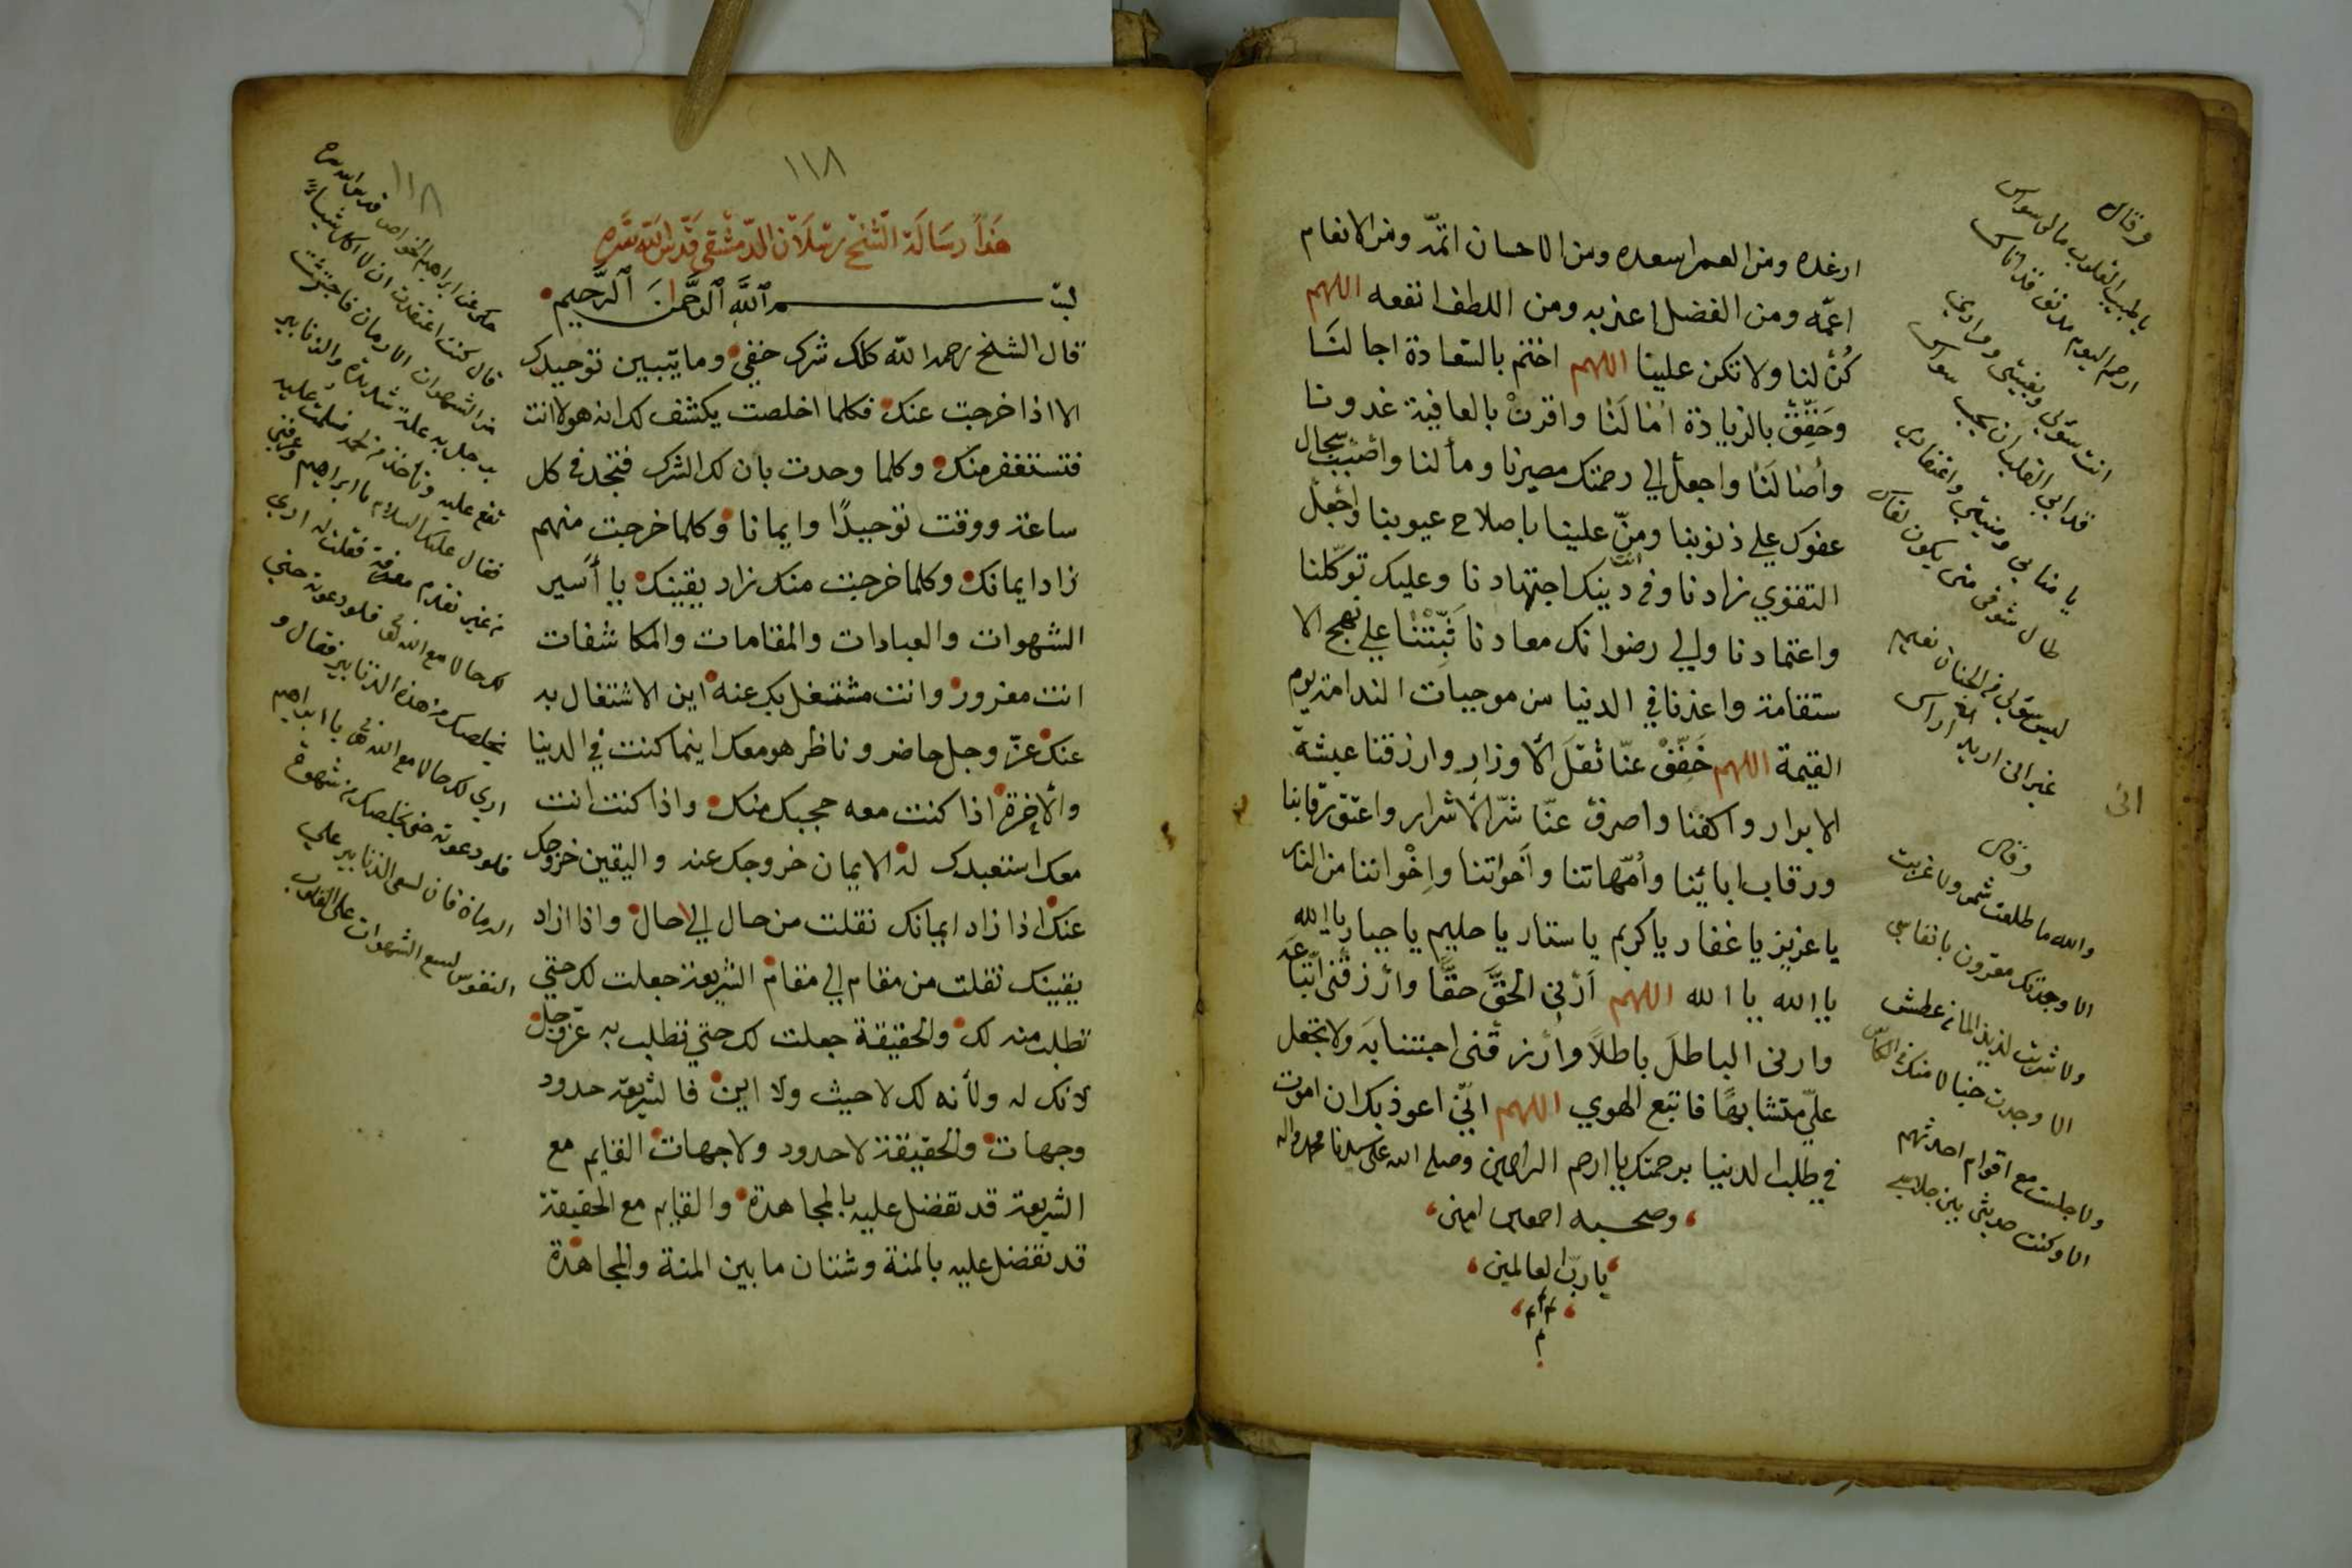 ارغده ومن العمر اسعده ومن الاحسان اتمّه ومن الانعام
اعمّه ومن الفضل اعذبه ومن اللطف انفعه اللهم
كُنْ لنا ولا تكن علينا اللهم اختم بالسّعادة اجالنَا
وحَقِّقْ بالزيادة امالَنا واقرنْ بالعافية غدونا
وأصالَنَا واجعل الي رحمتك مصيرنا ومألنا واصْبُبْ سِجال
عفوك علي ذنوبنا ومنّ علينا باصلاح عيوبنا واجْعل
التقوي زادنا وفي دينك اجتهادنا وعليك توكّلنا
انت
واعتمادنا والي رضوانك معادنا ثَبِّتْنَا علي نهج الا
ستقامة واعذنا في الدنيا من موجبات الندامة يوم
القيمة اللهم خَفِّفْ عنّا ثقلَ الأوزارِ وارزقنا عيشة
الابرار واكفنا واصرف عنّا شرّ الأشرار واعتق رقابنا
ورقاب ابائنا وأمّهاتنا وأخواتنا وإخْواننا من النار
يا عزيز يا غفار يا كريم يا ستار يا حليم يا جبار يا الله
يا الله يا الله اللهم أرِنِي الحَقَّ حقًّا وارْزقْنى اتّباعَه
وارنى الباطلَ باطلاً وارْزقْنى اجتنابَه ولا تجعل
عليّ متشابهًا فاتبع الهوي اللهم انّي اعوذ بك ان اموت
في طلب الدنيا برحمتك يا ارحم الراحمين وصلى الله على سيدنا محمد واله
وصحبه اجمعين امين
يا ربّ العالمين
م م م
م
وقال
يا طبيب القلوب مالى سواك
ارحم اليوم مذنف قد اتاك
انت سؤلى وبغيتى ومرادي
قد ابى القلب ان يحب سواك
يا منايى ومنيتى واعتقادي
طال شوقى متى يكون لقاك
ليس سؤلى من الجنان نعيم
غير انى اريد اراك
انى
وقال
والله ما طلعت شمس ولا غربت
الا وحبك مقرون بانفاسى
ولا شربت لذيذ الماء من عطش
الا وجدت خيالا منك فى الكأس
ولا جلست مع اقوام احدثهم
الا وكنت حديثى بين جلاسى
١١٨
١١٨
هَذَا رسَالَة الشّيخ رسْلَان الدّمشْقى قَدَّسَ اللّه سرَّه
بسم الله الرَّحمن الرَّحيم
قال الشيخ رحمه اللّه كلك شرك خفي وما يتبين توحيدك
الا اذا خرجت عنك فكلما اخلصت يكشف لك انه هو لا انت
فتستغفر منك وكلما وحدت بان لك الشرك فتجدد في كل
ساعة ووقت توحيدًا وايمانا وكلما خرجت منهم
زاد ايمانك وكلما خرجت منك زاد يقينك يا أسير
الشهوات والعبادات والمقامات والمكاشفات
انت مغرور وانت مشتغل بك عنه اين الاشتغال به
عنك عزّ وجل حاضر وناظر هو معك اينما كنت في الدينا
والأخرة اذا كنت معه حجبك منك واذا كنت انت
معك استعبدك له الايمان خروجك عنه واليقين خروجك
عنك اذا زاد ايمانك نقلت من حال الي حال واذا ازاد
يقينك نقلت من مقام الي مقام الشريعة جعلت لك حتي
تطلب منه لك والحقيقة جعلت لك حتي تطلب به عزّ وجلّ
لانك له ولأنه لك لا حيث ولا اين فالشريعة حدود
وجهات والحقيقة لا حدود ولا جهات القايم مع
الشريعة قد تفضل عليه بالمجاهدة والقايم مع الحقيقة
قد تفضل عليه بالمنة وشتان ما بين المنة والمجاهدة
حكى عن ابراهيم الخواص قدس الله سره
قال كنت اعتقدت ان لا اكل شيأ
من الشهوات الا الرمان فاجتزت
برجل به علة شديدة والزنابير
تقع عليه وتأخذ من لحمه فسلمت عليه
فقال عليك السلام يا ابراهيم وعرفنى
من غير تقدم معرفة فقلت له ارى
لك حالا مع الله تعالى فلو دعوته حتى
يخلصك من هذه الزنابير فقال و
ارى لك حالا مع الله تعالى يا ابراهيم
فلو دعوته حتى يخلصك من شهوة
الرمان فان لسع الزنابير على
النفوس ولسع الشهوات على القلوب